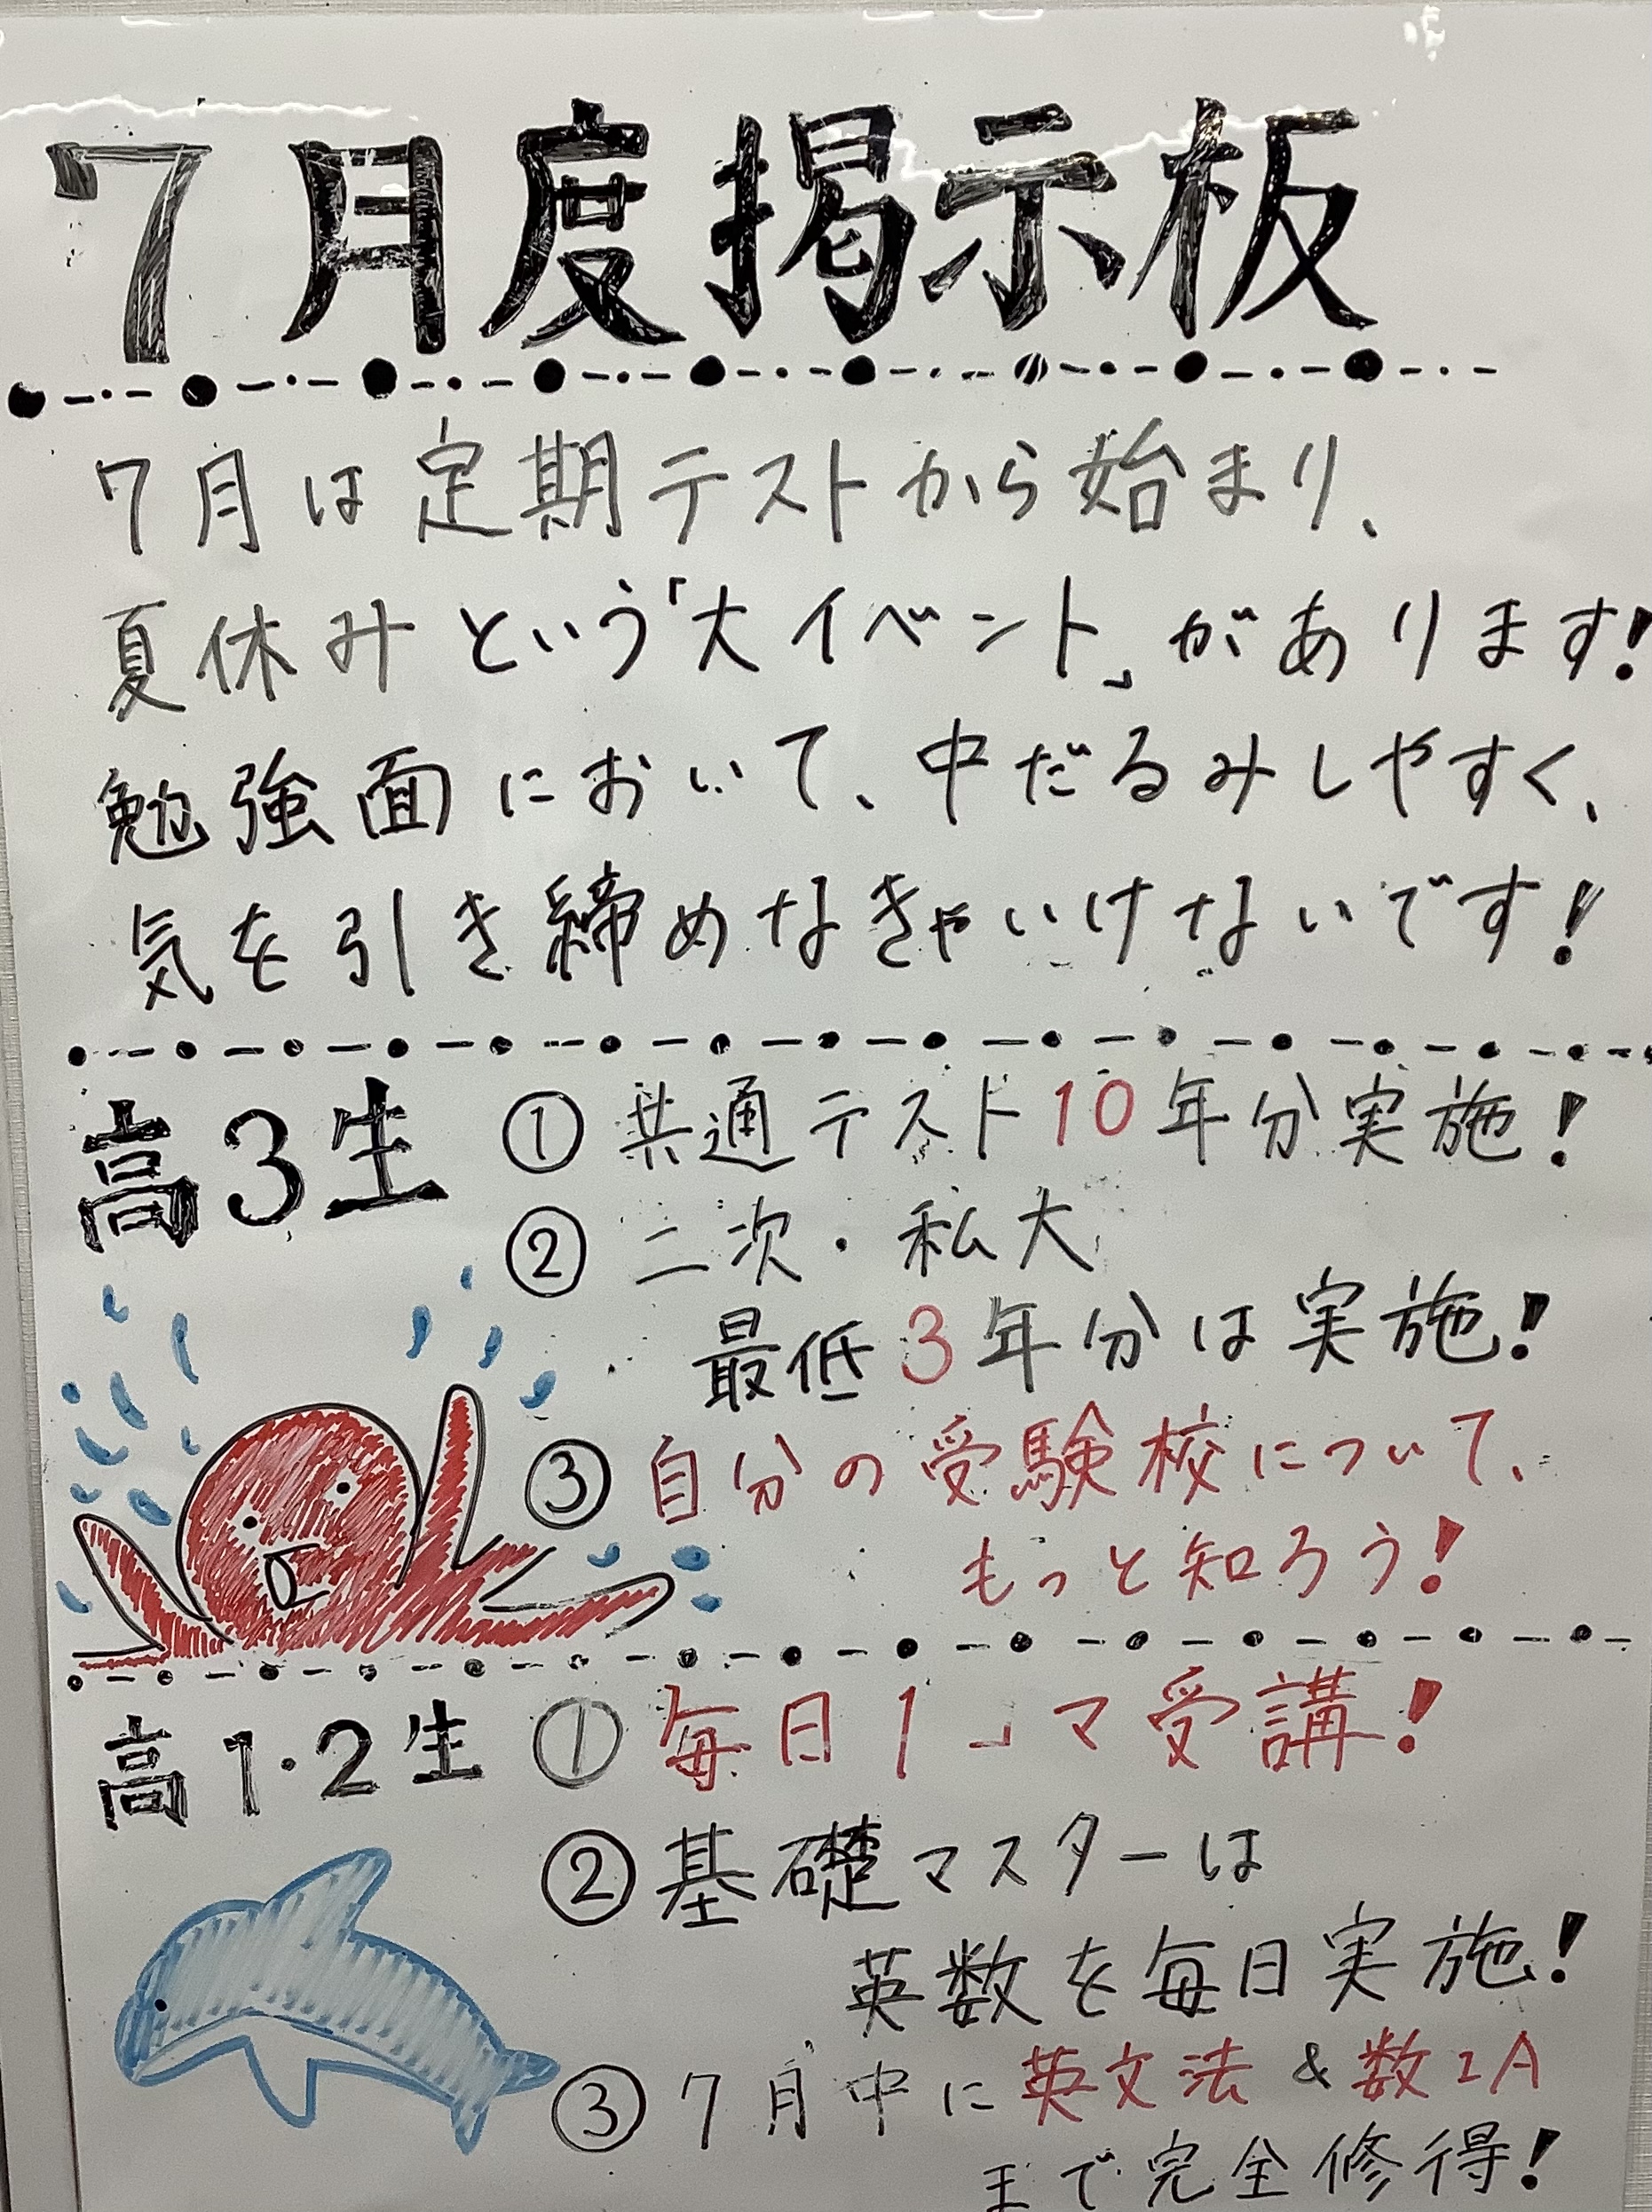 7月度掲示板
7月は定期テストから始まり、
夏休みという「大イベント」があります!
勉強面において、中だるみしやすく、
気を引き締めなきゃいけないです!
高3生
①共通テスト10年分実施!
②二次・私大
最低3年分は実施!
③自分の受験校について、
もっと知ろう!
高1・2生
①毎日1コマ受講!
②基礎マスターは
英数を毎日実施!
③7月中に英文法&数IA
まで完全修得!